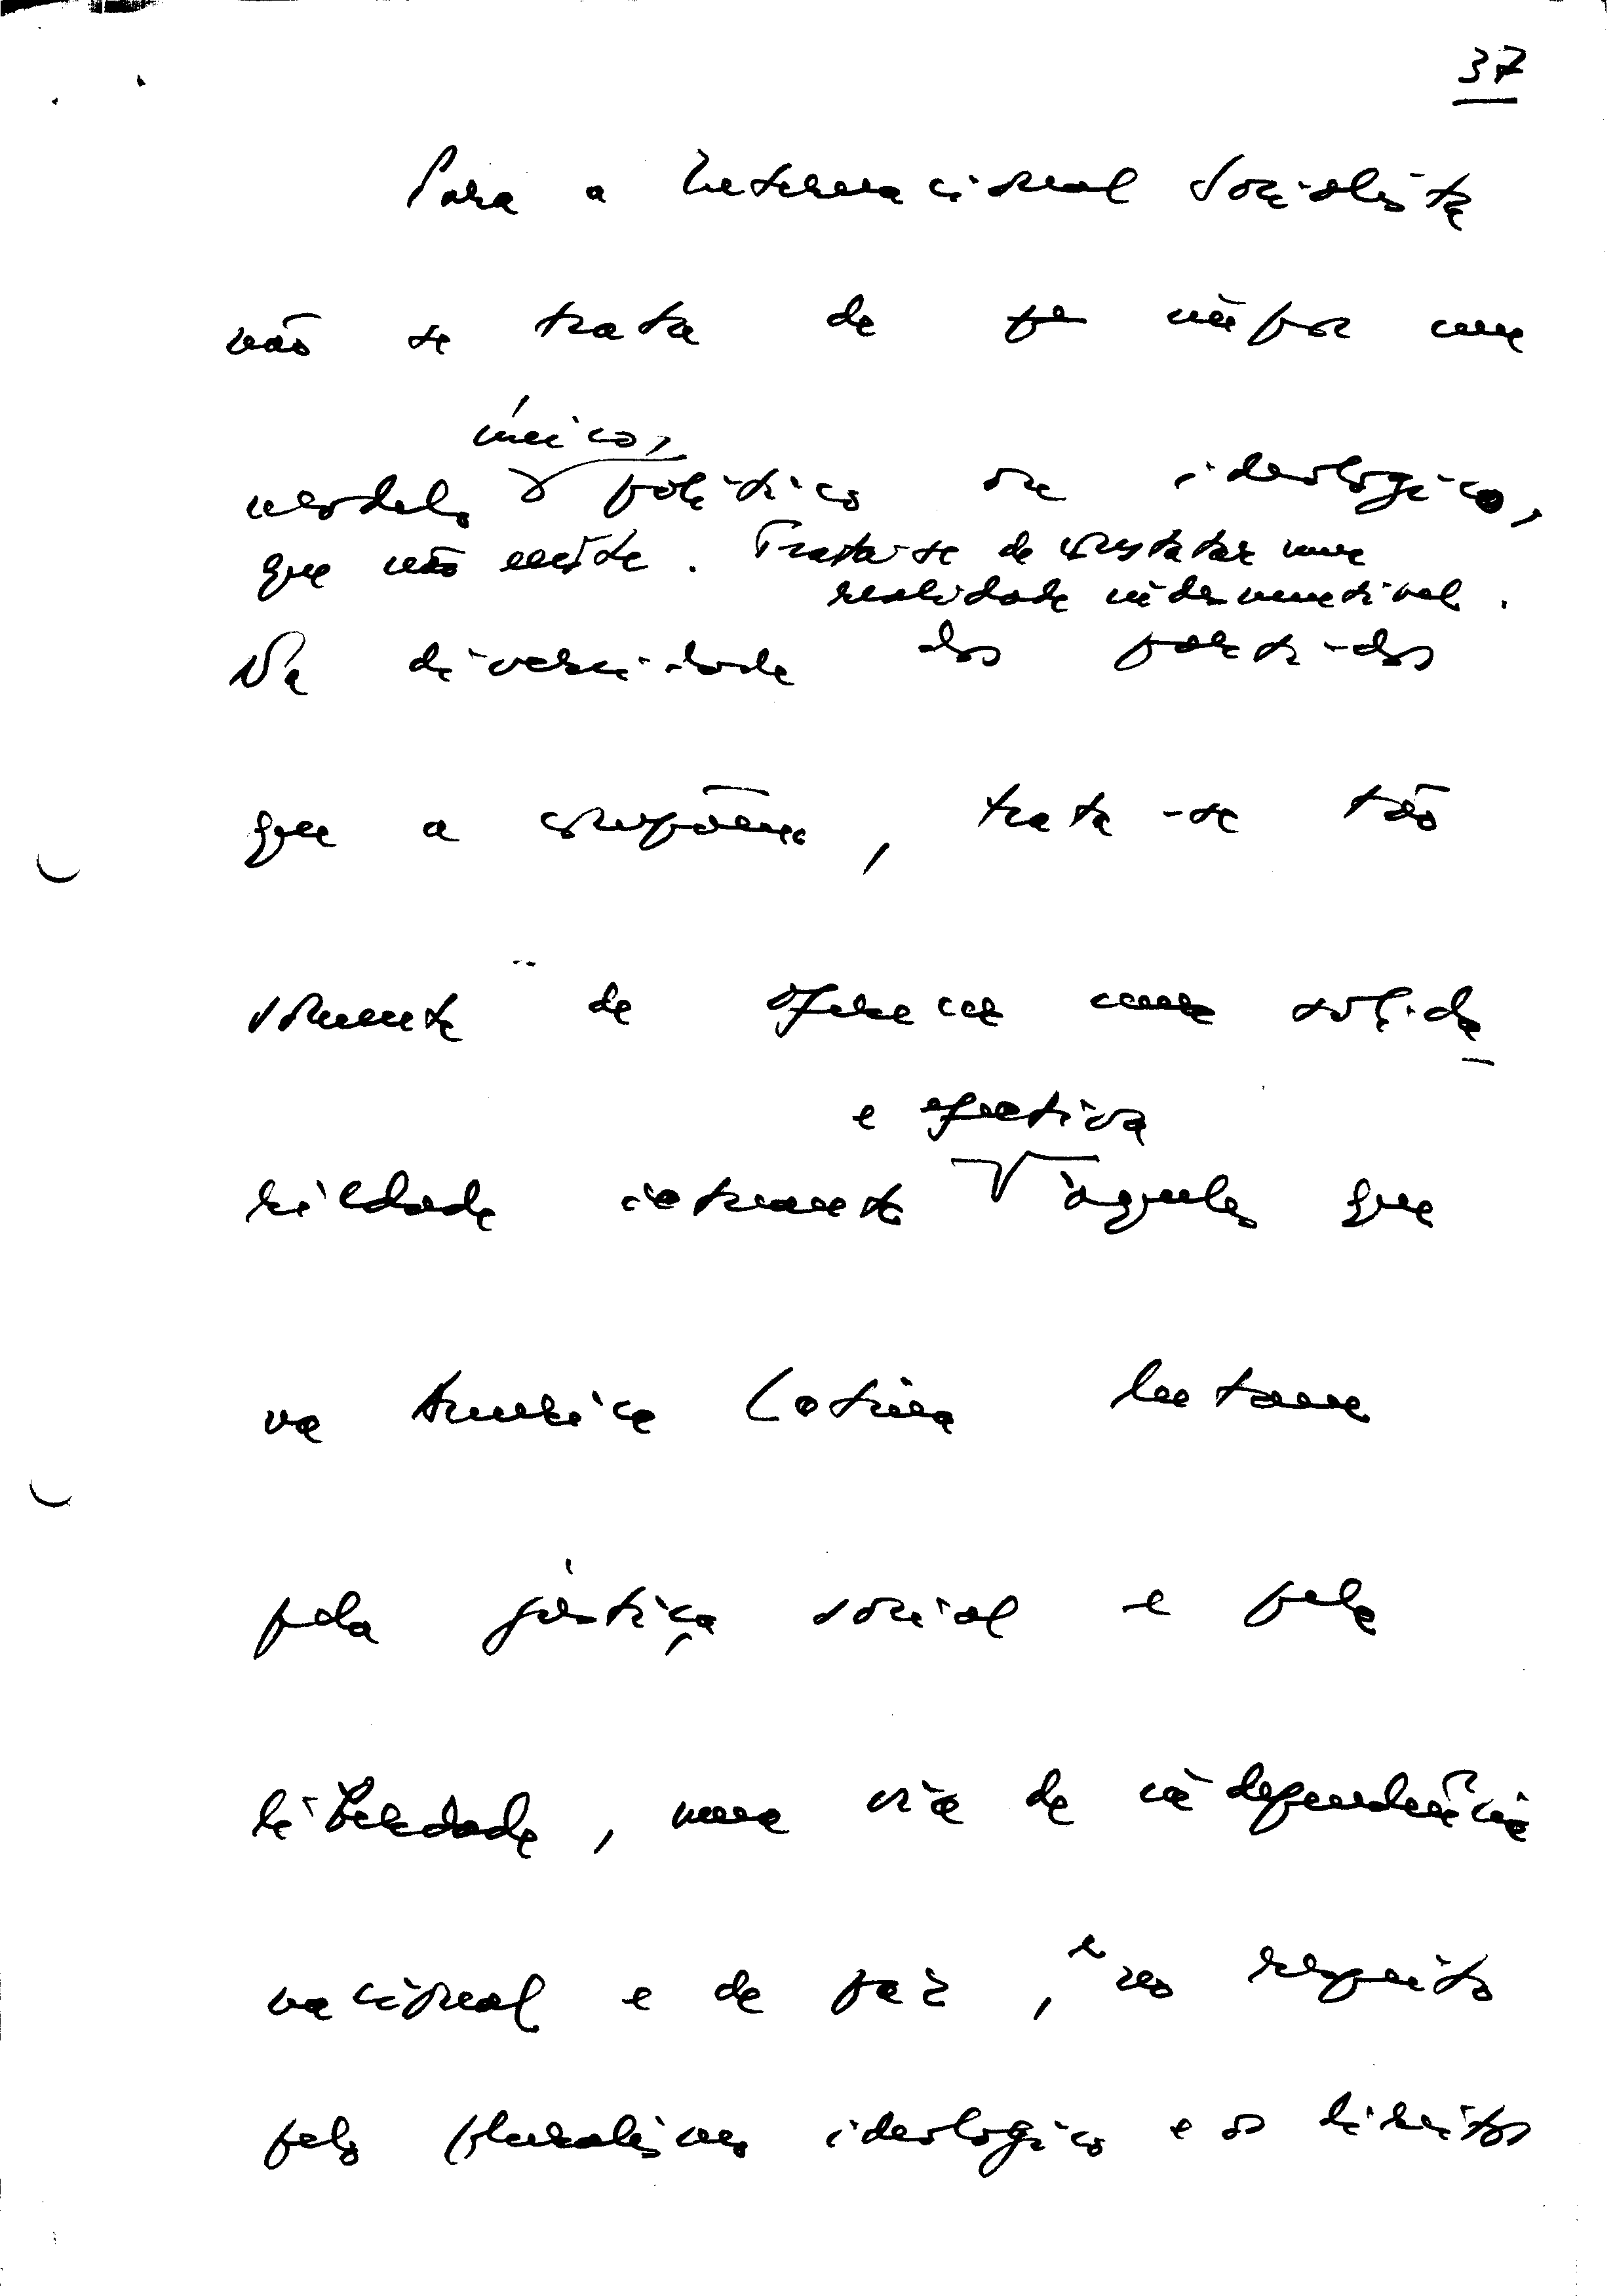 37
Para a Internacional Socialista
não se trata de impor um
único,
modelo político ou ideológico,
que não existe. Trata-se de constatar uma
realidade indesmentível.
Na diversidade dos partidos
que a compõem, trata-se tão
somente de oferecer uma solida-
e efectiva
riedade actuante àqueles que
na América Latina lutam
pela justiça social e pela
liberdade, numa via de independência
nacional e de paz, e no respeito
pelo pluralismo ideológico e os direitos